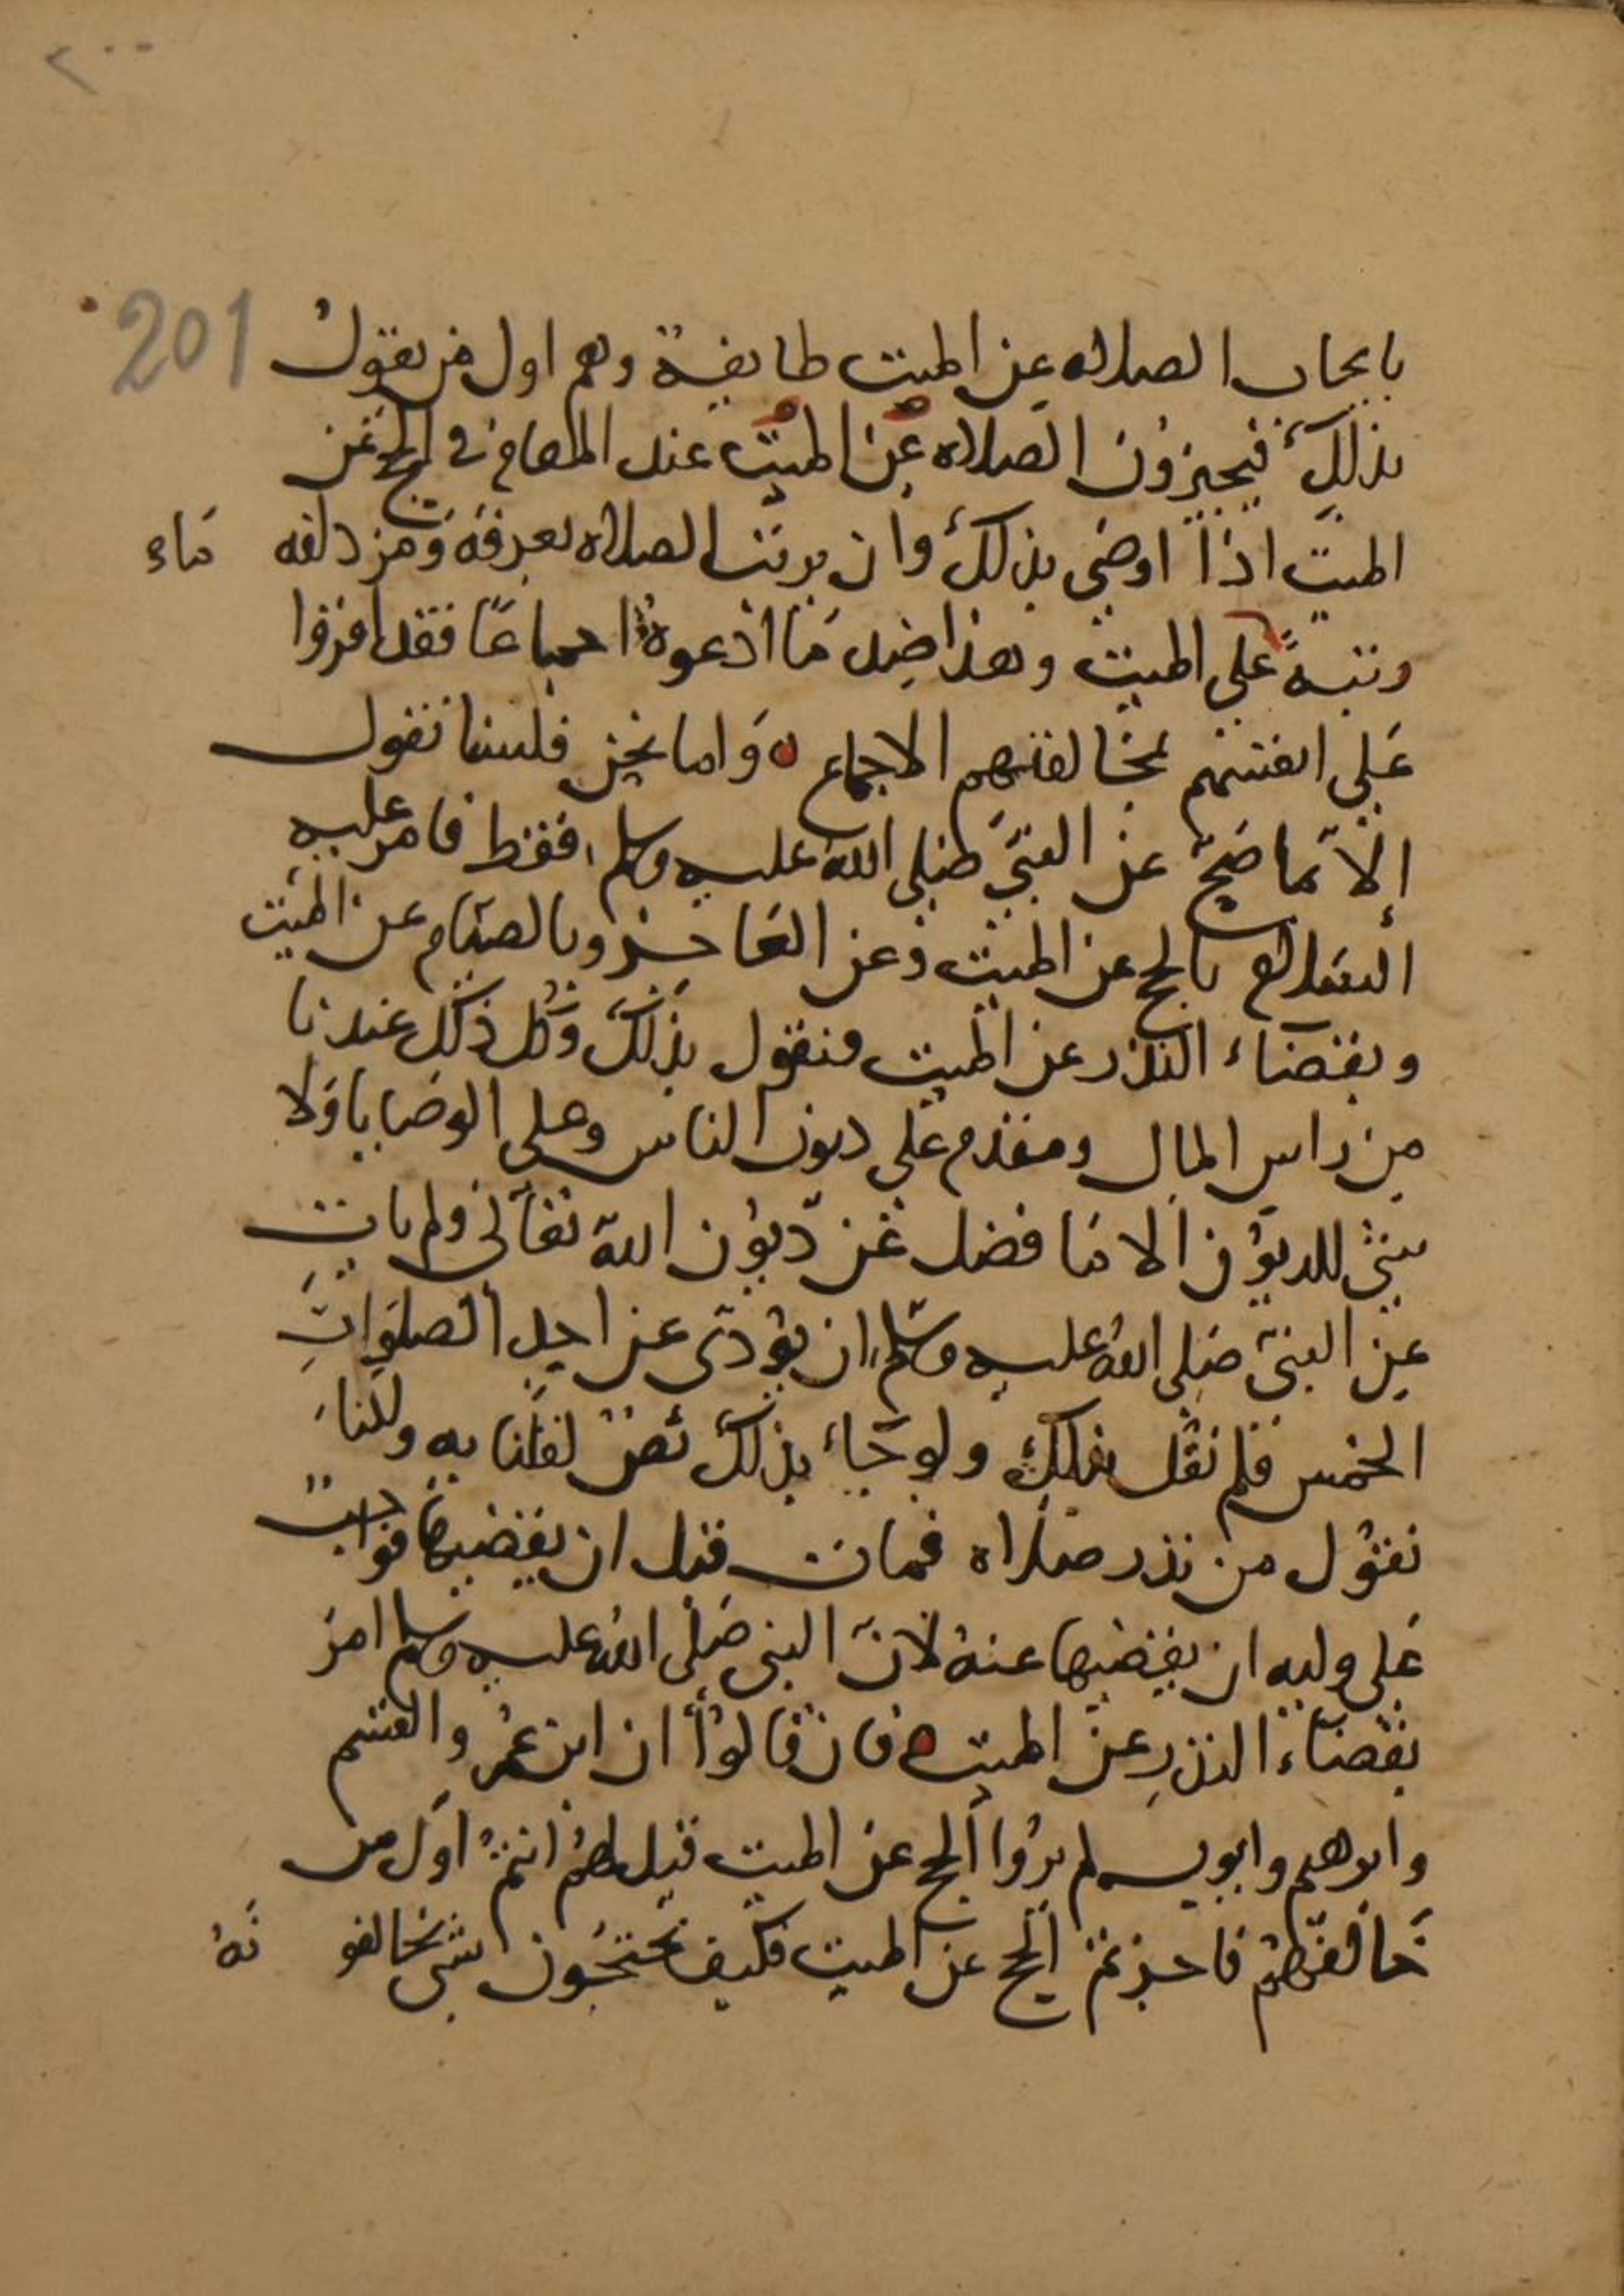 ٢٠٠
201
بايجاب الصلاه عن الميت طايفة وهم اول من يقول
بذلك فيجيزون الصلاه عن الميت عند المقام في الحج عن
الميت اذا اوصى بذلك وان برئت الصلاه بعرفة ومزدلفه ماء
ونتبة على الميت وهذا ضد ما ادعوه اجماعا فقد اقروا
على انفسهم بمخالفتهم الاجماع ه واما نحن فلسنا نقول
إلا بما صح عن النبي صلى الله عليه وسلم فقط فامر عليه
السلام بالحج عن الميت وعن العاجز وبالصيام عن الميت
وبقضاء النذر عن الميت فنقول بذلك وكل ذلك عندنا
من راس المال ومقدم على ديون الناس وعلى الوصايا ولا
شئ للديون الا ما فضل عن ديون الله تعالى ولم يات
عن النبي صلى الله عليه وسلم ان يؤدى عن احد الصلوات
الخمس فلم نقل بذلك ولو جاء بذلك نص لقلنا به ولكنا
نقول من نذر صلاه فمات قبل ان يقضيها فواجب
على وليه ان يقضيها عنه لان النبي صلى الله عليه وسلم امر
بقضاء النذر عن الميت ه فان قالوا ان ابن عمر والقسم
وابرهيم وابويسلم يروا الحج عن الميت قيل لهم انتم اول من
خالفهم فاجزتم الحج عن الميت فكيف تحتجون بشي تخالفو نه